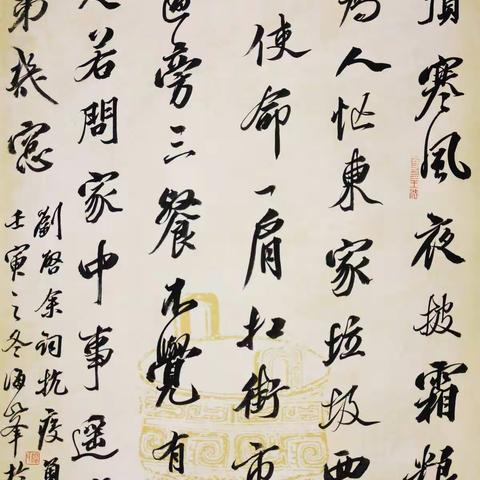 頂寒風夜披霜
為人忙東家垃圾西
使命一肩扛街市
旁三餐不覺有
若問家中事遥
第幾窓
劉啓余詞抗疫
壬寅之冬海峰於